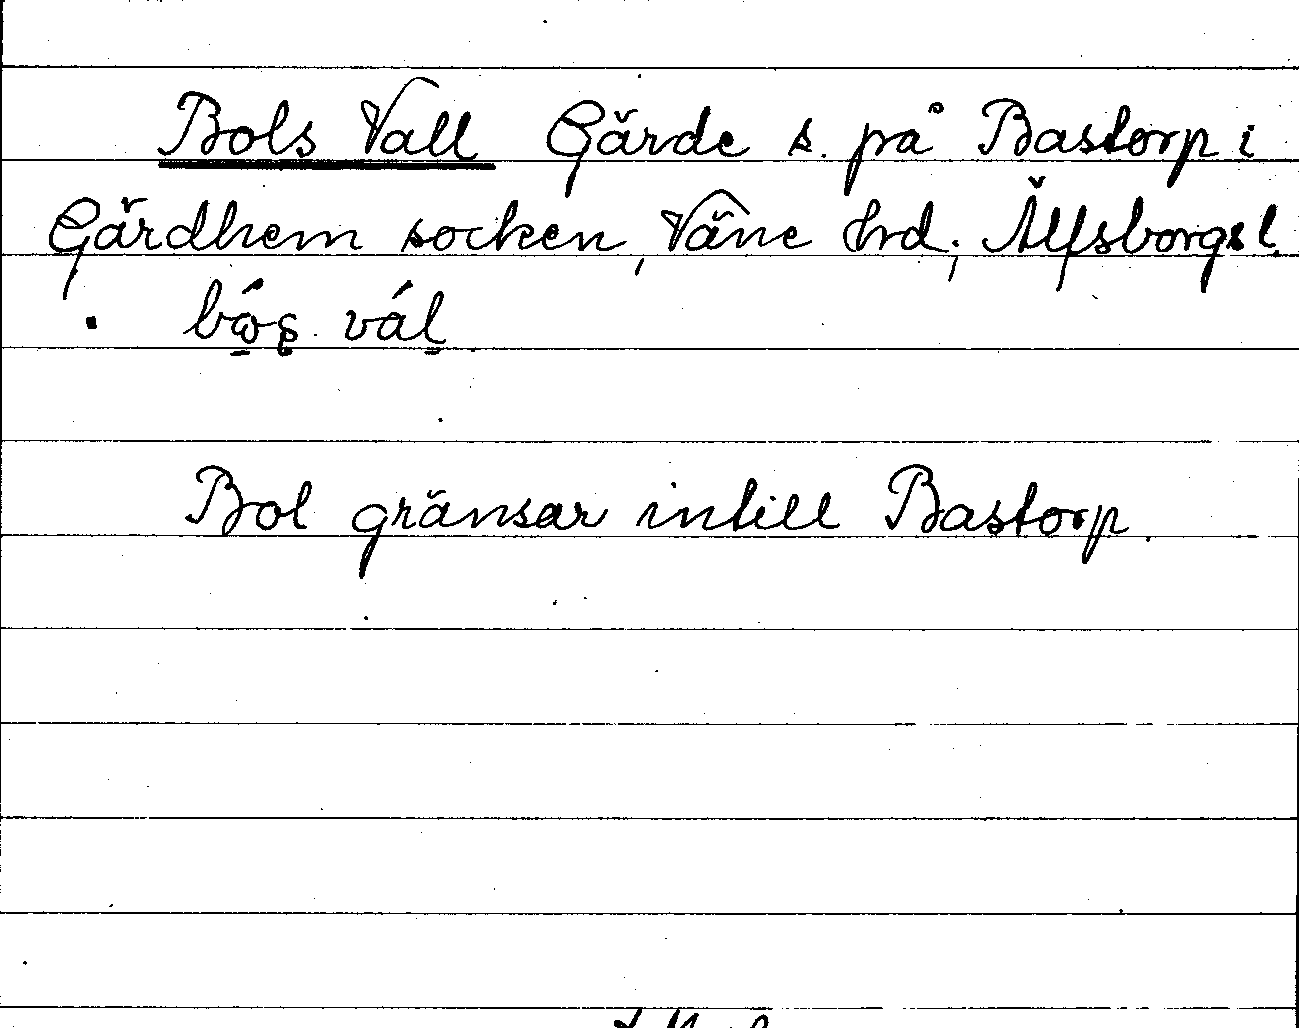 Bols Vall Gärde s. på Bastorp i
Gärdhem socken, Väne hrd; Älfsborgs l.
vál
Bol gränsar intill Bastorp.